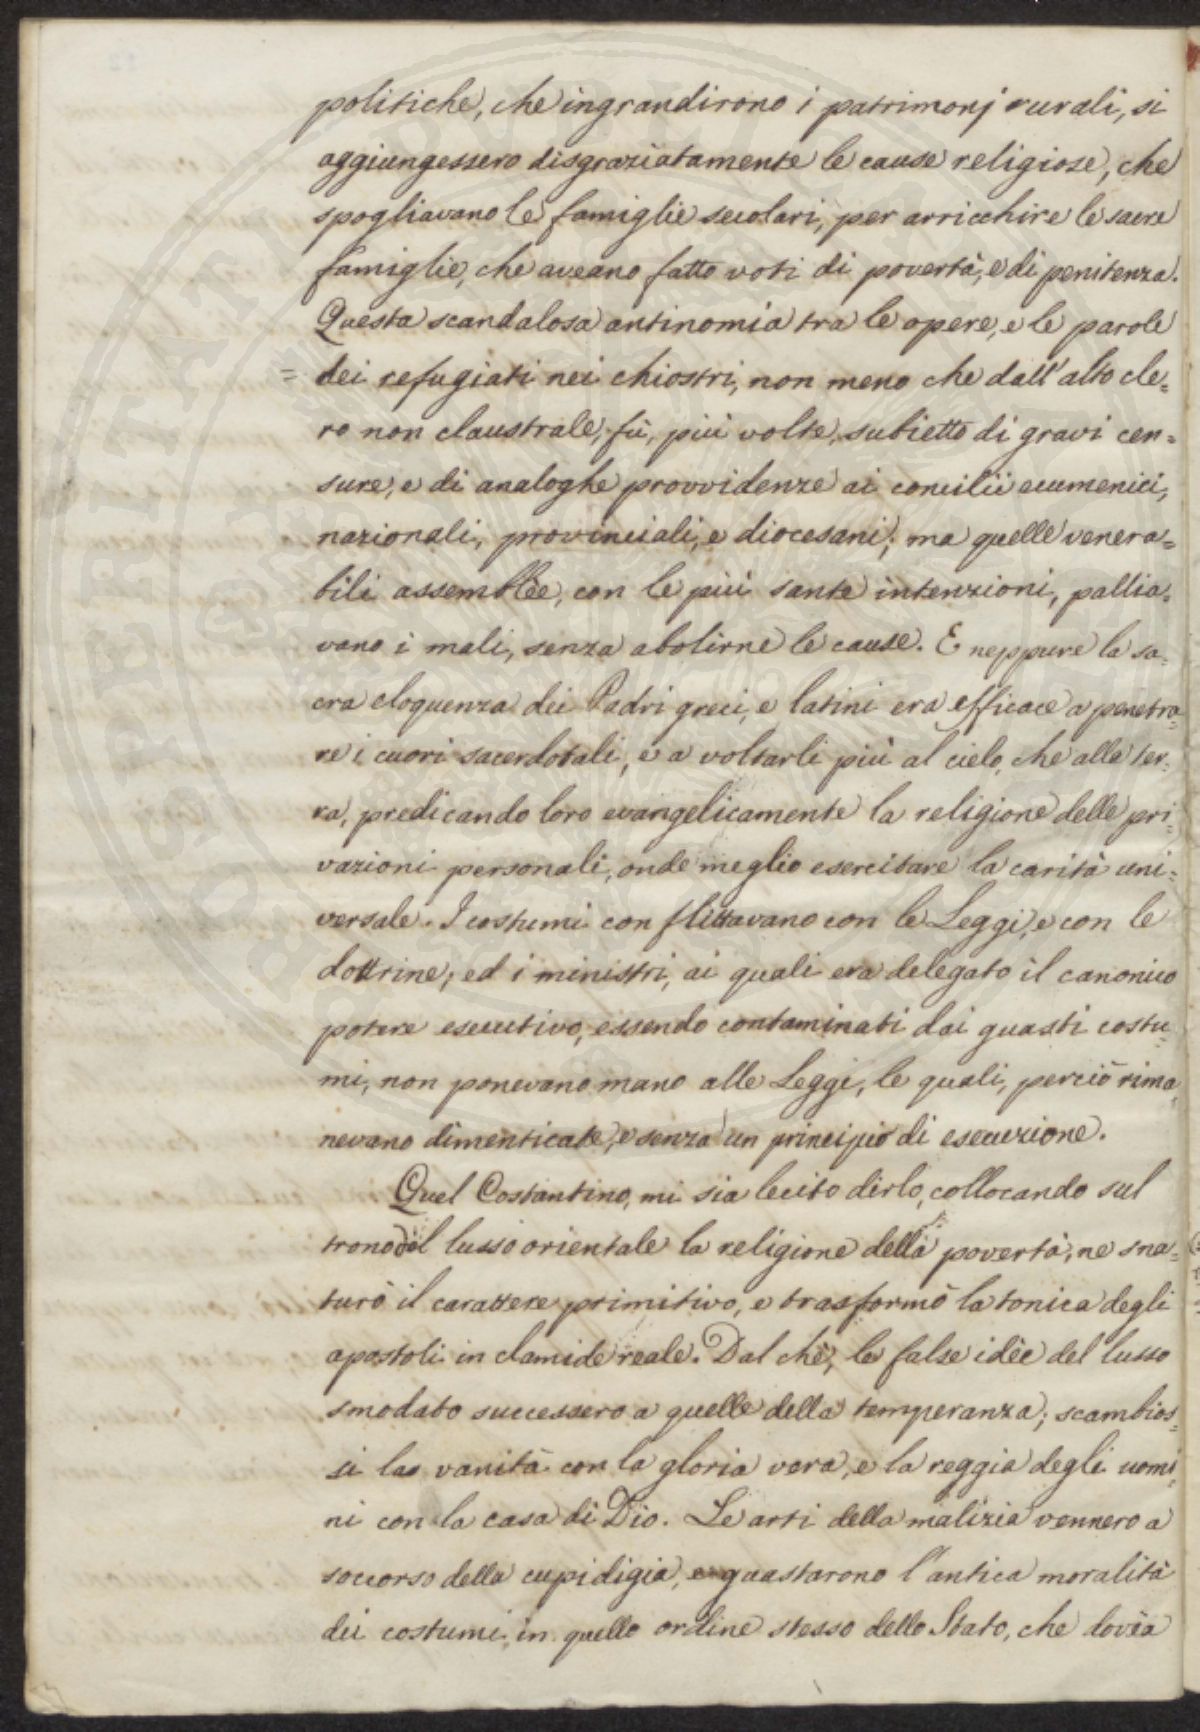 politiche, che ingrandirono i patrimonj rurali, si
aggiungessero disgraziatamente le cause religiose, che
spogliavano le famiglie secolari, per arricchire le sacre
famiglie, che aveano fatto voti di povertà, e di penitenza.
Questa scandalosa antinomia tra le opere, e le parole
= dei refugiati nei chiostri, non meno che dall'alto cle=
ro non claustrale, fù, più volte, subietto di gravi cen=
sure, e di analoghe provvidenze ai concilii ecumenici,
nazionali, provinciali, e diocesani; ma quelle venera=
bili assemblèe, con le più sante intenzioni, pallia=
vano i mali, senza abolirne le cause. E neppure la sa=
cra eloquenza dei Padri greci, e latini era efficace a penetra=
re i cuori sacerdotali, e a voltarli più al cielo, che alla ter=
ra, predicando loro evangelicamente la religione delle pri=
vazioni personali, onde meglio esercitare la carità uni=
versale. I costumi conflittavano con le Leggi, e con le
dottrine; ed i ministri, ai quali era delegato il canonico
potere esecutivo, essendo contaminati dai guasti costu=
mi, non ponevano mano alle Leggi, le quali, perciò rima=
nevano dimenticate, e senza un principio di esecuzione.
Quel Costantino, mi sia lecito dirlo, collocando sul
trono del lusso orientale la religione della povertà, ne sna=
turò il carattere primitivo, e trasformò la tonica degli
apostoli in clamide reale. Dal chè, le false idèe del lusso
smodato successero a quelle della temperanza; scambios=
si la vanità con la gloria vera, e la reggia degli uomi=
ni con la casa di Dio. Le arti della malizia vennero a
soccorso della cupidigia, e guastarono l'antica moralità
dei costumi, in quello ordine stesso dello Stato, che dovèa
PROSPERITATI PVBLICAE